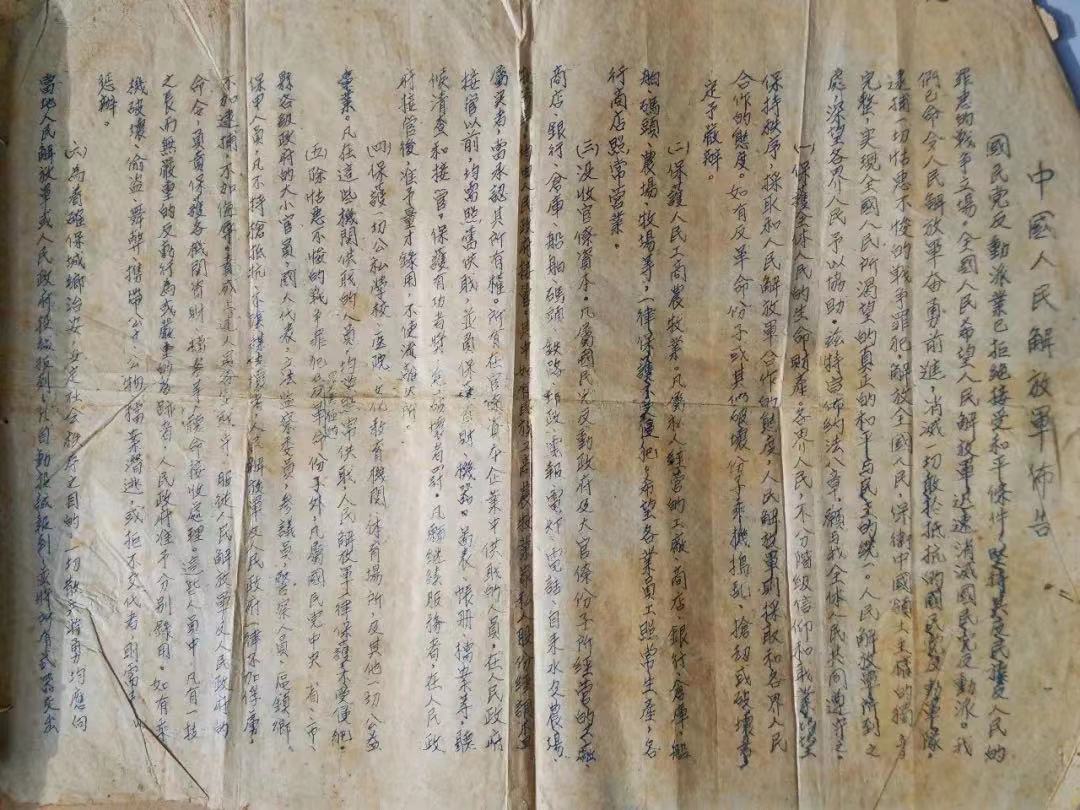 中國人民解放軍佈告
國民党反動派業已拒絕接受和平條件，堅持其反民族反人民的
罪惡的戰爭立場。全國人民希望人民解放軍迅速消滅國民党反動派。我
們已命令人民解放軍奋勇前進，消滅一切敢於抵抗的國民党反動軍隊，
逮捕一切怙惡不悛的戰爭罪犯，解放全國人民，保衛中國領土主權的獨立
完整，实現全國人民所渴望的真正的和平与民主的統一。人民解放軍所到之
處，深望各界人民予以協助。兹特宣佈約法八章，願与我全体人民共同遵守之
(一)保護全体人民的生命財產。各界人民，不分階級信仰和职業，望
保持秩序，採取和人民解放軍合作的態度，人民解放軍則採取和各界人民
合作的態度。如有反革命份子或其他破壞份子乘機搗乱，搶刼或破壞者，
定予嚴辦。
(二)保護人民工商農牧業。凡屬私人經营的工廠，商店，銀行，倉庫，船
舶，碼頭，農場，牧場等，一律保護不受侵犯，希望各業員工照常生產，各
行商店照常营業。
(三)没收官僚資本。凡屬國民党反動政府及大官僚份子所經营的工廠，
商店，銀行，倉庫，船舶，碼頭，鉄路，郵政，電報，電灯，電話，自來水及農場，
均由人民政府接管。其中，如有民族工商農牧業家私人股份經調查
屬实者，當承認其所有權。所有在官僚資本企業中供职的人員，在人民政府
接管以前，均需照舊供职，並負保護資財，機器，圖表，帳册，檔案等，聽
候清查和接管。保護有功者奬，怠工破壞者罰。凡願继续服務者，在人民政
府接管後，准予量才錄用，不使流離失所。
(四)保護一切公私學校，医院，文化教育機関，体育場所及其他一切公益
事業。凡在這些機関供职的人員，均望照常供职，人民解放軍一律保護不受侵犯。
(五)除怙惡不悛的戰爭罪犯及反革命份子外，凡屬國民党中央，省，市，
縣各級政府的大小官員，國大代表，立法監察委員，參議員，警察人員，區鎮鄉
保甲人員，凡不持槍抵抗，不陰謀破壞者，人民解放軍及人民政府一律不加俘虜，
不加逮捕，不加侮辱。責成上述人員各安职守，服從人民解放軍及人民政府的
命令，負責保護各機関資財，檔案等，聽命接收處理。這些人員中，凡有一技
之長而無嚴重的反動行為或嚴重的劣跡者，人民政府准予分别錄用。如有乘
機破壞，偷盗，舞弊，携帶公款，公物，檔案潛逃，或拒不交代者，則當予
惩辦。
(六)為着確保城鄉治安，安定社会秩序之目的，一切散兵游勇均應向
當地人民解放軍或人民政府投誠報到。凡自動投誠報到，並將所有武器交出